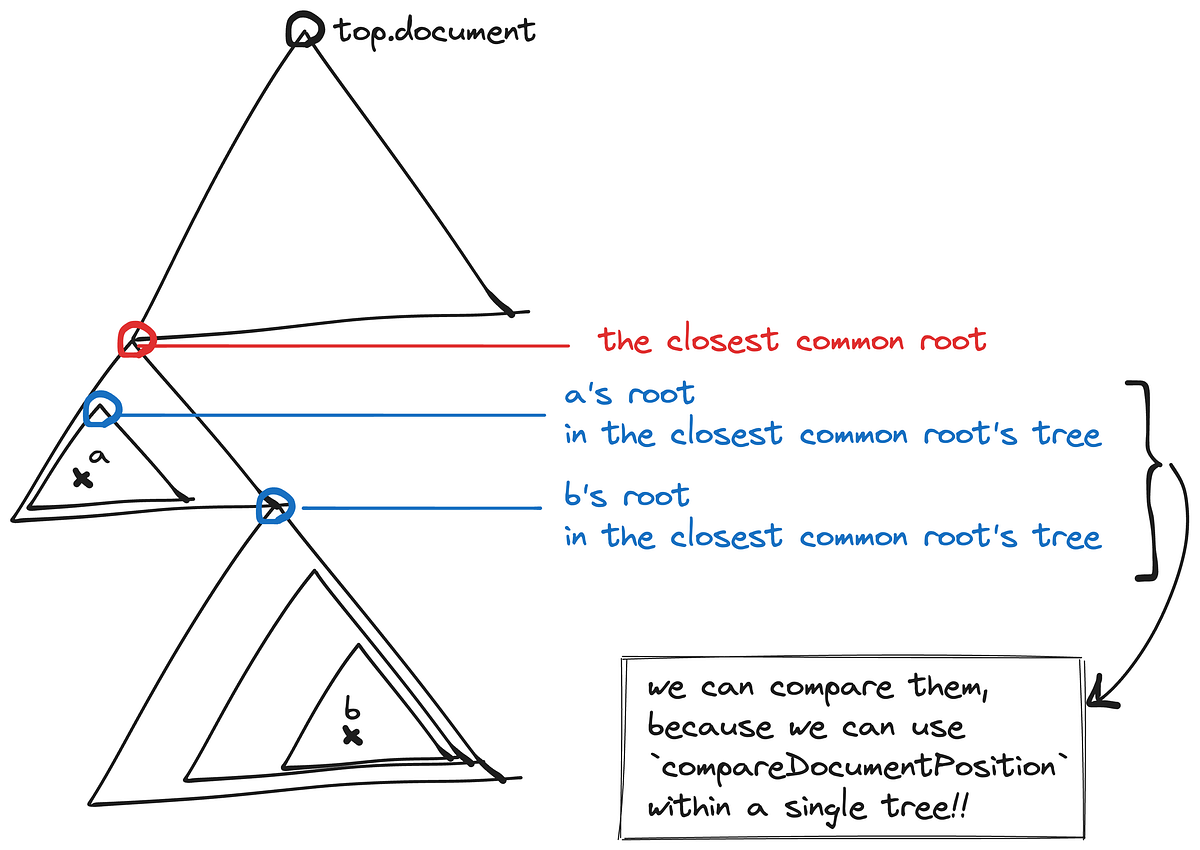 top.document
the closest common root
a's root
in the closest common root's tree
a
b's root
in the closest common root's tree
b
we can compare them,
because we can use
`compareDocumentPosition`
within a single tree!!